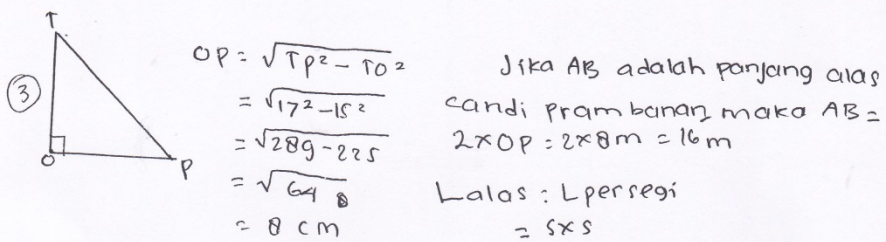 ③
T
O
P
OP = √TP² - TO²
= √17² - 15²
= √289 - 225
= √64
= 8 cm
Jika AB adalah panjang alas
candi prambanan, maka AB =
2 x OP = 2 x 8 m = 16 m
Lalas : L persegi
= s x s